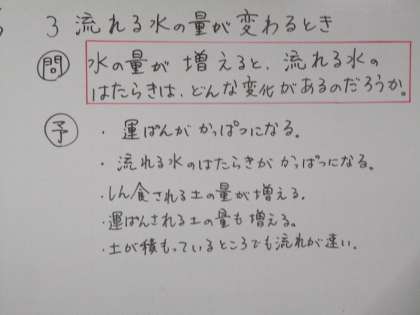 3 流れる水の量が変わるとき
問 水の量が増えると、流れる水の
はたらきは、どんな変化があるのだろうか。
予 ・運ぱんがかっぱつになる。
・流れる水のはたらきがかっぱつになる。
・しん食される土の量が増える。
・運ぱんされる土の量も増える。
・土が積もっているところでも流れが速い。